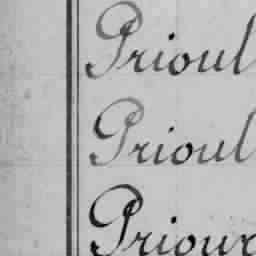 Prioul
Prioul
Prioux